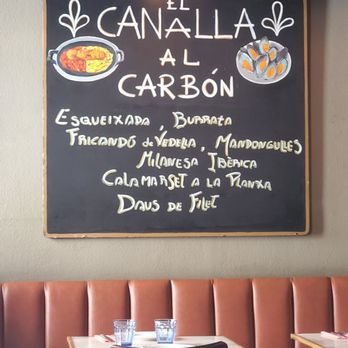 EL
CANALLA
AL
CARBÓN
ESQUEIXADA, BURRATA
FRICANDÓ DE VEDELLA, MANDONGUILLES
MILANESA IBÈRICA
CALAMARSET A LA PLANXA
DAUS DE FILET